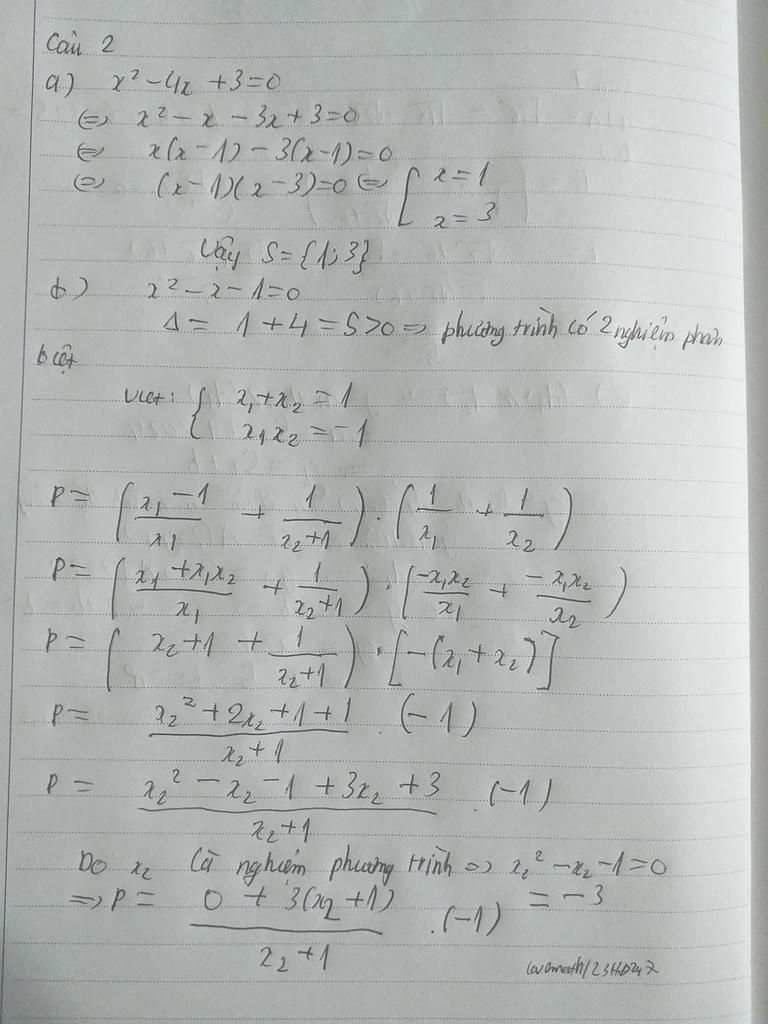 Câu 2
a) x² - 4x + 3 = 0
⇔ x² - x - 3x + 3 = 0
⇔ x(x - 1) - 3(x - 1) = 0
⇔ (x - 1)(x - 3) = 0 ⇔ [ x = 1
x = 3
Vậy S = {1; 3}
b) x² - x - 1 = 0
Δ = 1 + 4 = 5 > 0 ⇒ phương trình có 2 nghiệm phân
biệt
Viet: { x₁ + x₂ = 1
x₁x₂ = -1
P = ((x₁ - 1)/x₁ + 1/(x₂ + 1)) . (1/x₁ + 1/x₂)
P = ((x₁ + x₁x₂)/x₁ + 1/(x₂ + 1)) . (-x₁x₂/x₁ + -x₁x₂/x₂)
P = (x₂ + 1 + 1/(x₂ + 1)) . [-(x₁ + x₂)]
P = (x₂² + 2x₂ + 1 + 1)/(x₂ + 1) . (-1)
P = (x₂² - x₂ - 1 + 3x₂ + 3)/(x₂ + 1) . (-1)
Do x₂ là nghiệm phương trình ⇒ x₂² - x₂ - 1 = 0
⇒ P = (0 + 3(x₂ + 1))/(x₂ + 1) . (-1) = -3